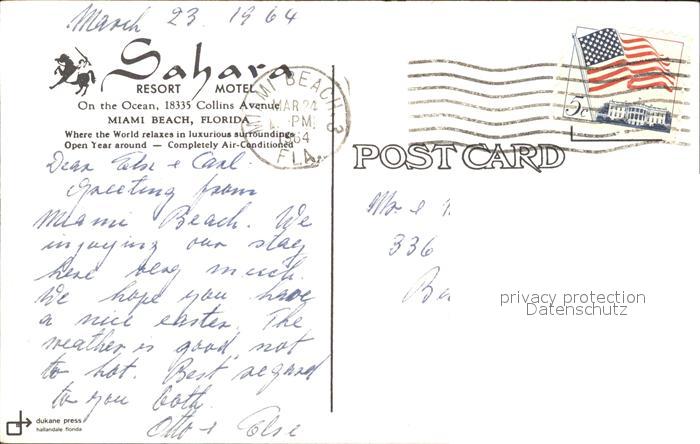 March 23. 1964
Sahara
RESORT MOTEL
On the Ocean, 18335 Collins Avenue
MIAMI BEACH, FLORIDA
Where the World relaxes in luxurious surroundings
Open Year around — Completely Air-Conditioned
Dear Else & Carl.
Greeting from
Miami Beach. We
injoying our stay
here very much.
We hope you have
a nice easter. The
weather is good not
to hot. Best regard
to you both.
Otto & Else
dukane press
hallandale florida
MIAMI BEACH, 3
MAR 24
PM
1964
FLA.
5c
POST CARD
Mr &
336
privacy protection
Datenschutz